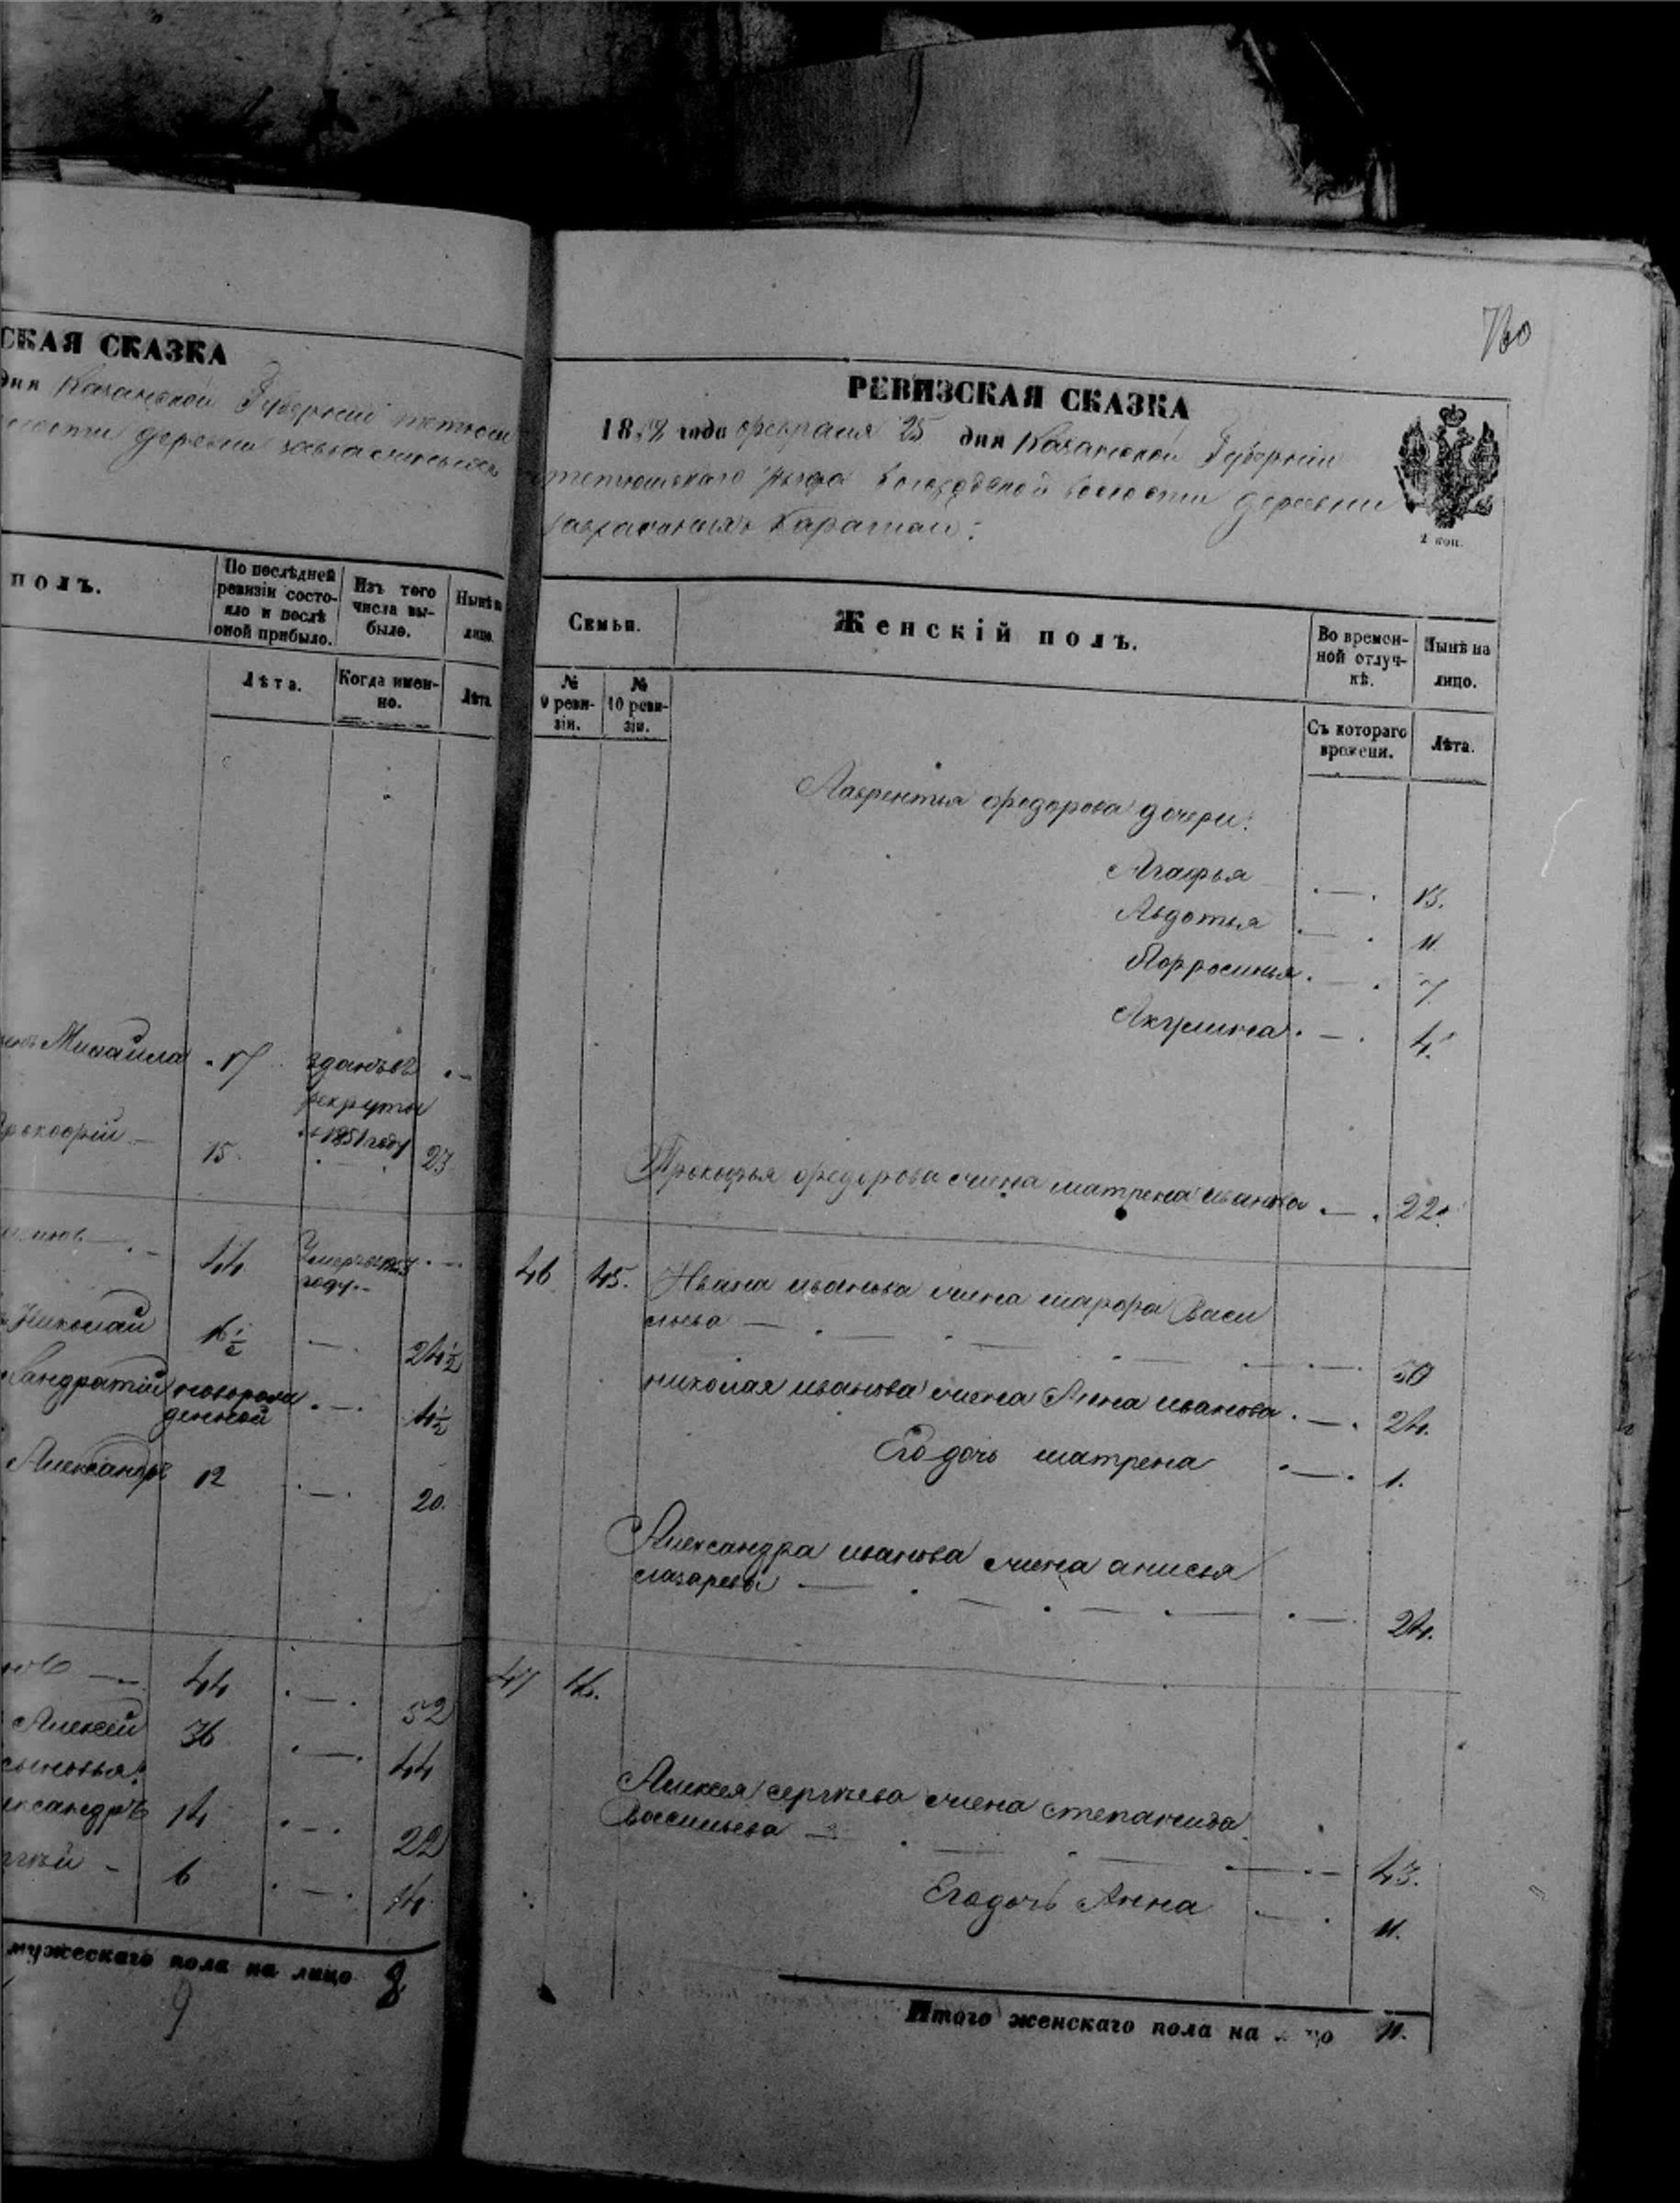 СКАЯ СКАЗКА
дня Казанской Губерніи тетюш
волости деревни
полъ.
По послѣдней ревизіи состо-
яло и послѣ оной прибыло.
Изъ того числа вы-
было.
Нынѣ на лицо.
Лѣта.
Когда имен-
но.
Лѣта.
Михаила 17 зданъ въ
рекруты
въ 1851 году
Прокофій 15 23
44 Умеръ
году
Николай 16 1/2 24 1/2
новорож
денной 4 1/2
Александръ 12 20.
44 52
Алексей 36 44
сыновья:
ександръ 14 22
ргѣй 6 14.
мужескаго пола на лицо 8
9
760
РЕВИЗСКАЯ СКАЗКА
1858 года февраля 25 дня Казанской Губерніи
тетюшскаго уѣзда волости деревни
Каратаи:
2 коп.
Семьи.
Женскій полъ.
Во времен-
ной отлуч-
кѣ.
Нынѣ на
лицо.
№
9 реви-
зіи.
№
10 реви-
зіи.
Съ котораго
времени.
Лѣта.
Лаврентья федорова дочери:
Агафья 13.
Авдотья 11.
7
Акулина 4.
Прокофья федорова жена матрена иванова 22.
46 45. Ивана иванова жена Васи
льева 50
николая иванова жена Анна иванова 24.
Его дочь матрена 1.
Александра иванова жена анисья
лазарева 24.
47 46.
Алексея сергѣева жена степанида
Васильева 43.
Его дочь Анна 11.
Итого женскаго пола на лицо 11.